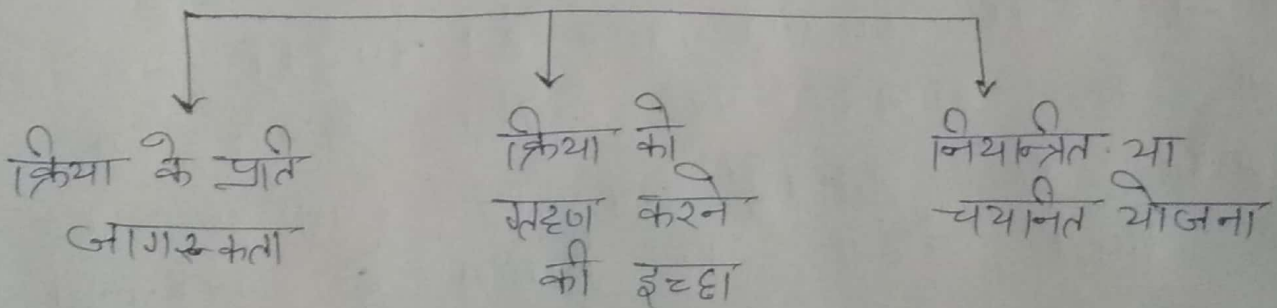 क्रिया के प्रति
जागरूकता
क्रिया को
ग्रहण करने
की इच्छा
नियन्त्रित या
चयनित योजना